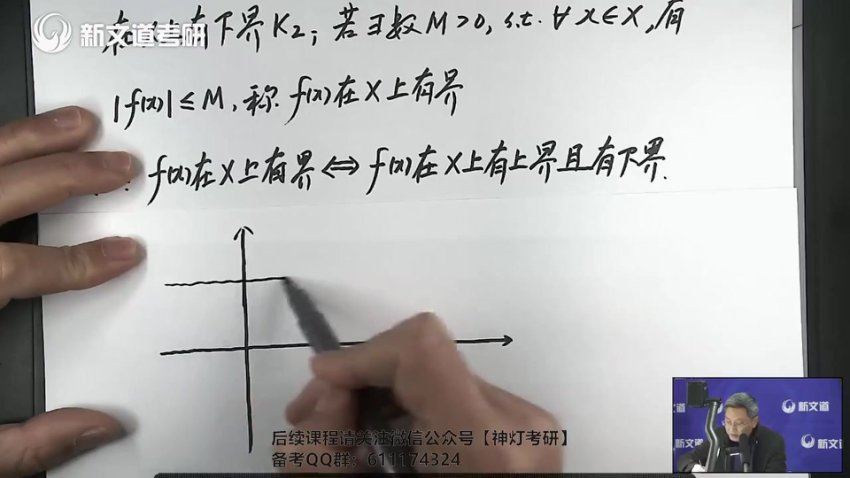 新文道考研
有下界K₂; 若∃数M>0, s.t. ∀x∈X, 有
|f(x)|≤M, 称 f(x)在X上有界
f(x)在X上有界⇔f(x)在X上有上界且有下界.
后续课程请关注微信公众号【神灯考研】
备考QQ群：611174324
新文道
新文道